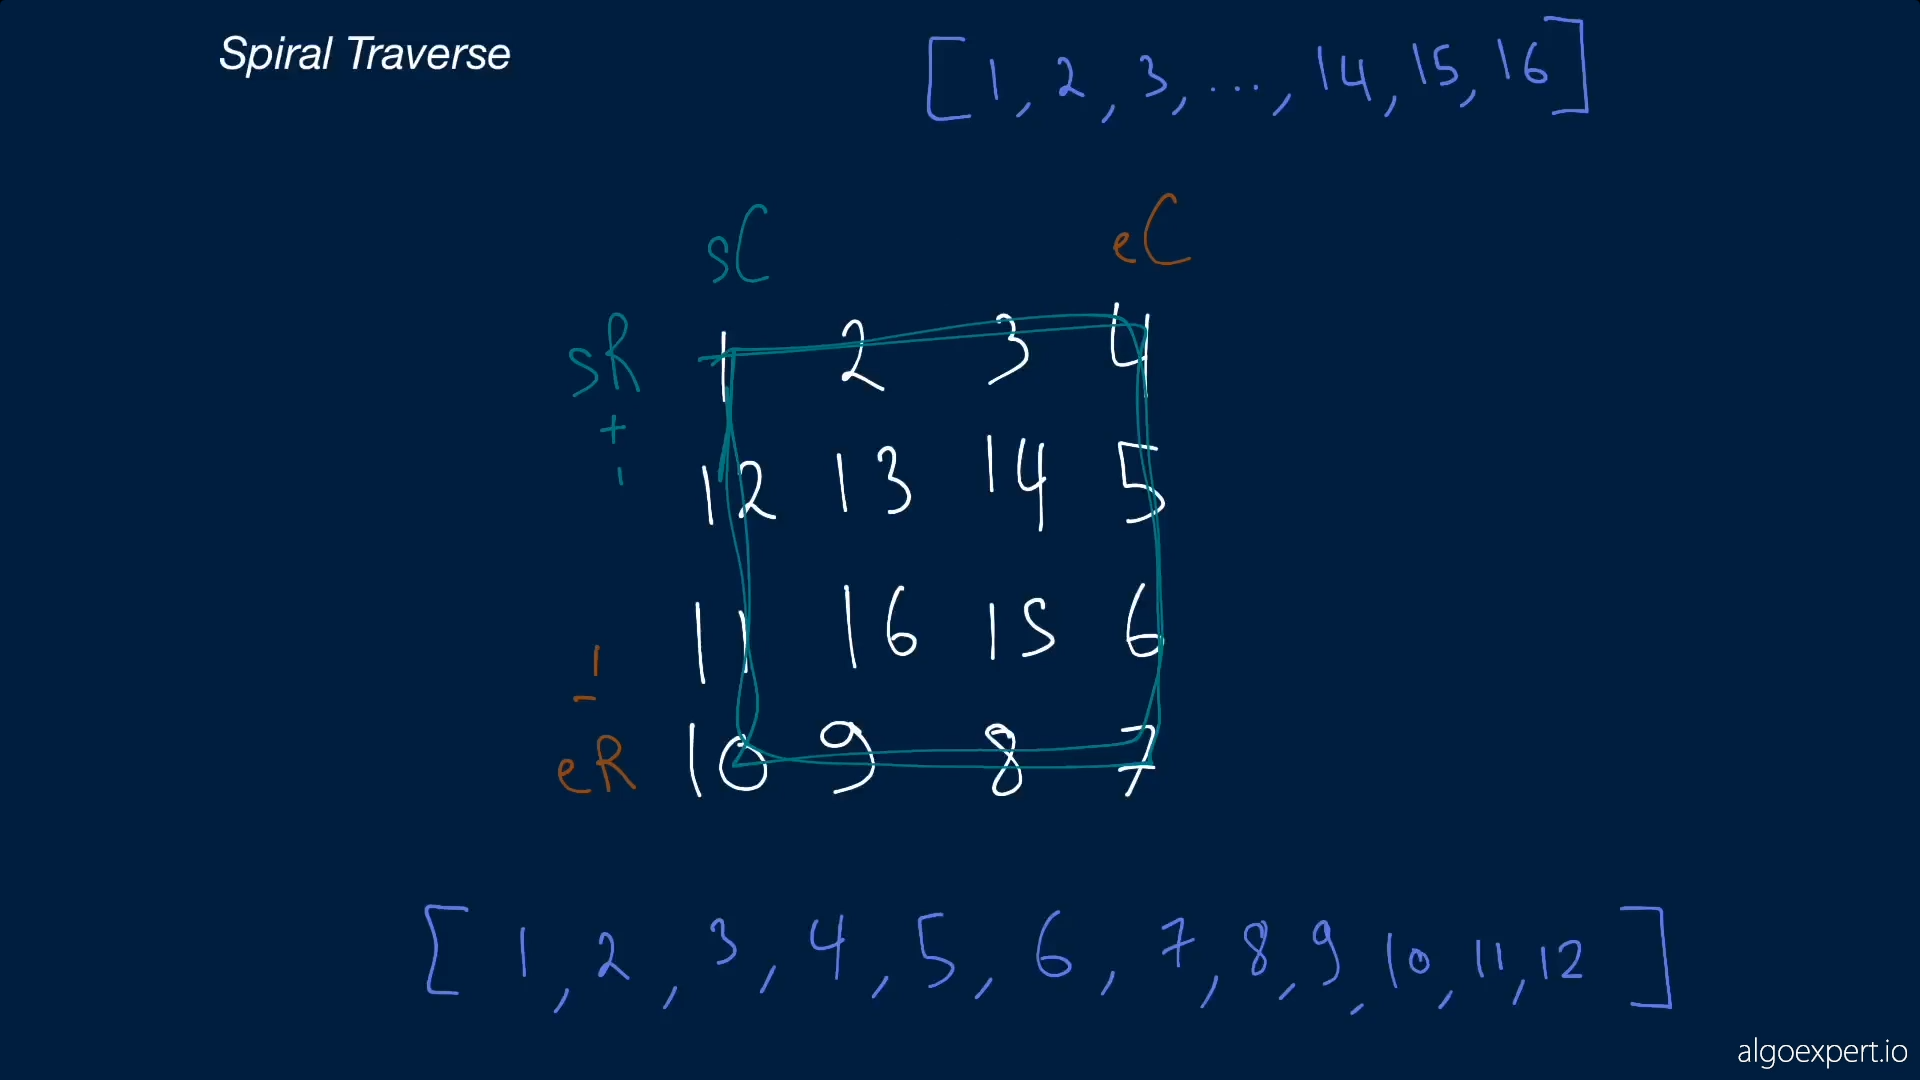 Spiral Traverse
[1, 2, 3, ..., 14, 15, 16]
sC eC
sR 1 2 3 4
+
1 12 13 14 5
11 16 15 6
1
-
eR 10 9 8 7
[1, 2, 3, 4, 5, 6, 7, 8, 9, 10, 11, 12]
algoexpert.io